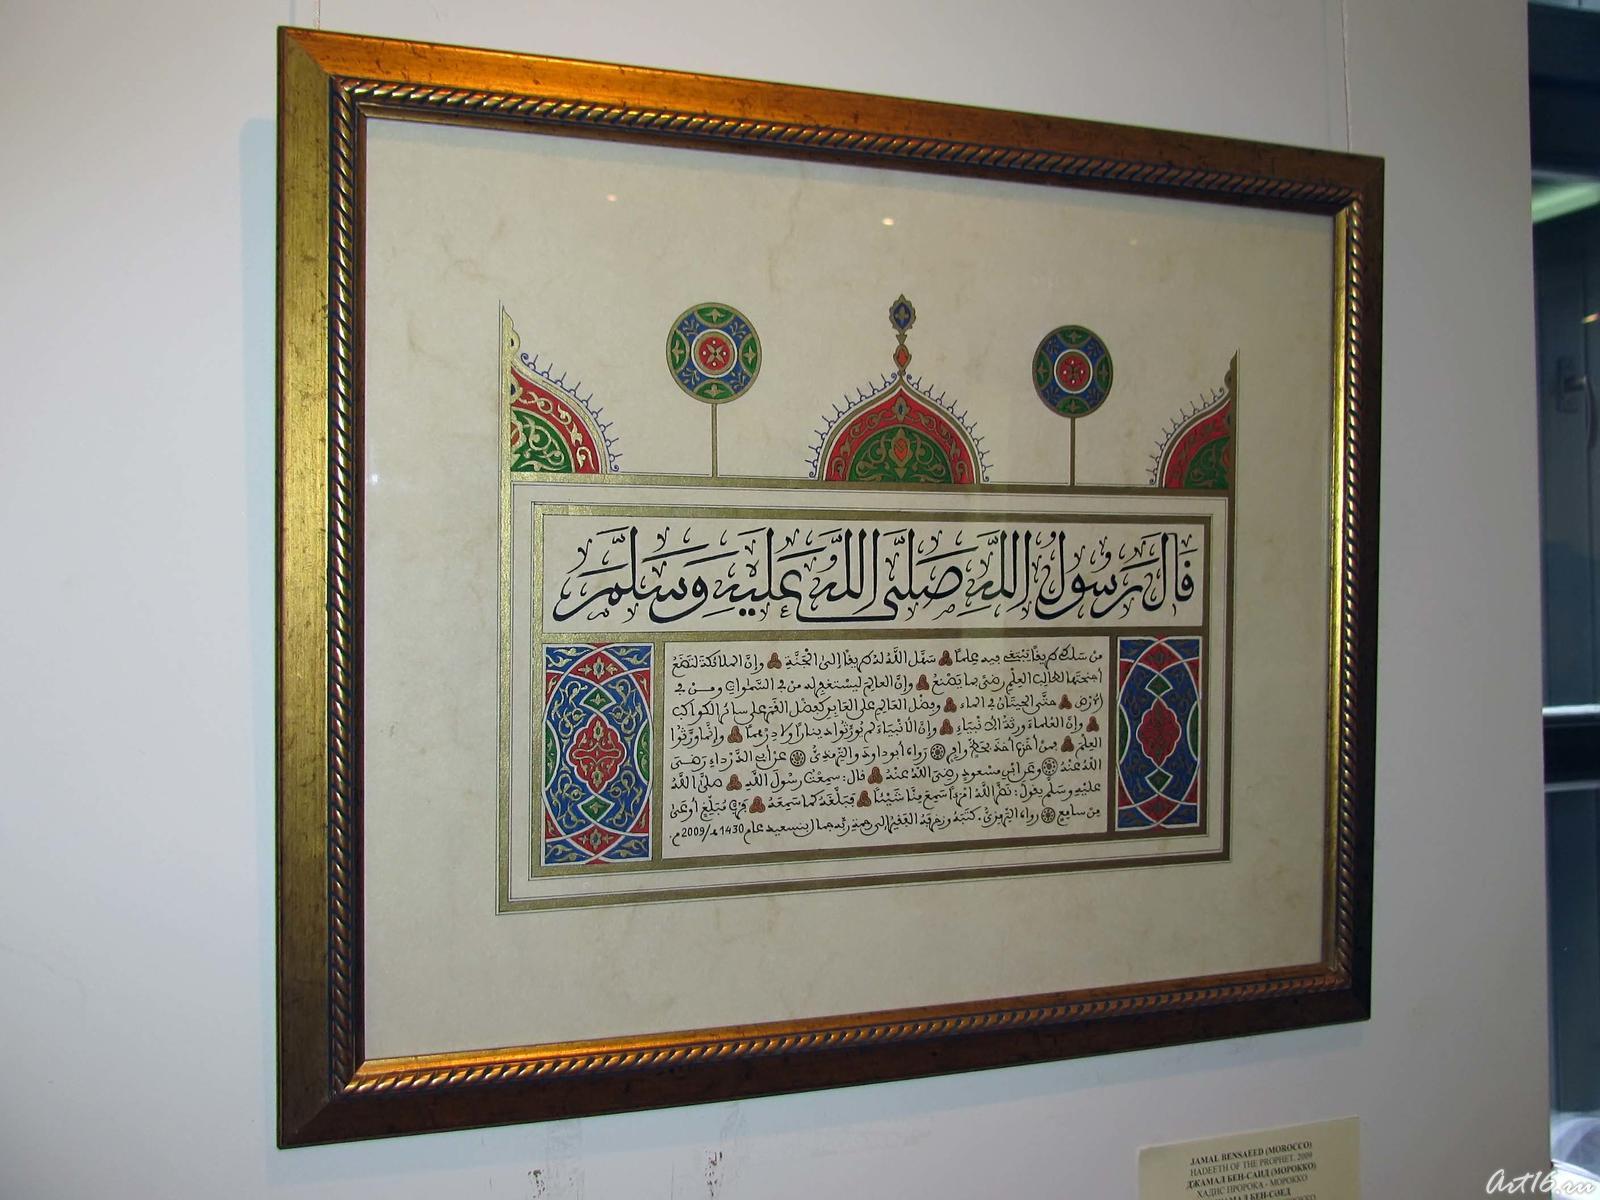 قَالَ رَسُولُ اللَّهِ صَلَّى اللَّهُ عَلَيْهِ وَسَلَّمَ
مَن سَلَكَ طَرِيقًا يَبْتَغِي فِيهِ عِلْمًا سَهَّلَ اللَّهُ لَهُ طَرِيقًا إِلَى الْجَنَّةِ وَإِنَّ الْمَلَائِكَةَ لَتَضَعُ
أَجْنِحَتَهَا لِطَالِبِ الْعِلْمِ رِضًى بِمَا يَصْنَعُ وَإِنَّ الْعَالِمَ لَيَسْتَغْفِرُ لَهُ مَن فِي السَّمَاوَاتِ وَمَنْ فِي
الْأَرْضِ حَتَّى الْحِيتَانُ فِي الْمَاءِ وَفَضْلُ الْعَالِمِ عَلَى الْعَابِدِ كَفَضْلِ الْقَمَرِ عَلَى سَائِرِ الْكَوَاكِبِ
وَإِنَّ الْعُلَمَاءَ وَرَثَةُ الْأَنْبِيَاءِ وَإِنَّ الْأَنْبِيَاءَ لَمْ يُوَرِّثُوا دِينَارًا وَلَا دِرْهَمًا وَإِنَّمَا وَرَّثُوا
الْعِلْمَ فَمَنْ أَخَذَهُ أَخَذَ بِحَظٍّ وَافِرٍ رَوَاهُ أَبُو دَاوُدَ وَالتِّرْمِذِيُّ عَنْ أَبِي الدَّرْدَاءِ رَضِيَ
اللَّهُ عَنْهُ وَعَنِ ابْنِ مَسْعُودٍ رَضِيَ اللَّهُ عَنْهُ قَالَ: سَمِعْتُ رَسُولَ اللَّهِ صَلَّى اللَّهُ
عَلَيْهِ وَسَلَّمَ يَقُولُ: نَضَّرَ اللَّهُ امْرَأً سَمِعَ مِنَّا شَيْئًا فَبَلَّغَهُ كَمَا سَمِعَهُ فَرُبَّ مُبَلَّغٍ أَوْعَى
مِنْ سَامِعٍ رَوَاهُ التِّرْمِذِيُّ. كَتَبَهُ وَزَخْرَفَهُ الْفَقِيرُ إِلَى رَحْمَةِ رَبِّهِ جمال بنسعيد عام 1430هـ/2009م.
JAMAL BENSAEED (MOROCCO)
HADEETH OF THE PROPHET. 2009
ДЖАМАЛ БЕН-САИД (МОРОККО)
ХАДИС ПРОРОКА - МОРОККО
ДЖАМАЛ БЕН-СӘЕД
Art16.ru